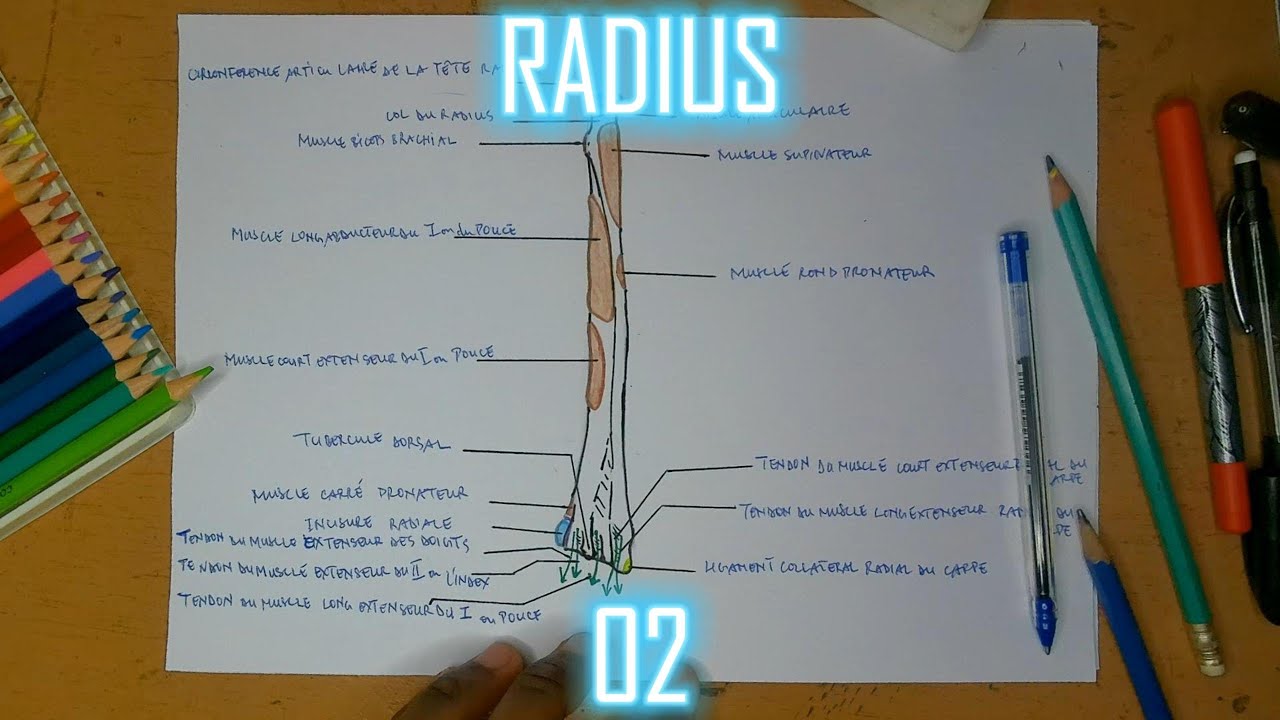 RADIUS
CIRCONFERENCE ARTICULAIRE DE LA TÊTE
COL DU RADIUS
MUSCLE BICEPS BRACHIAL
MUSCLE SUPINATEUR
MUSCLE LONG ABDUCTEUR DU I ou du POUCE
MUSCLE ROND PRONATEUR
MUSCLE COURT EXTENSEUR DU I ou POUCE
TUBERCULE DORSAL
TENDON DU MUSCLE COURT EXTENSEUR DU
MUSCLE CARRÉ PRONATEUR
TENDON DU MUSCLE LONG EXTENSEUR DU
INCISURE RADIALE
TENDON DU MUSCLE EXTENSEUR DES DOIGTS
TENDON DU MUSCLE EXTENSEUR DU II ou L'INDEX
LIGAMENT COLLATERAL RADIAL DU CARPE
TENDON DU MUSCLE LONG EXTENSEUR DU I ou POUCE
02